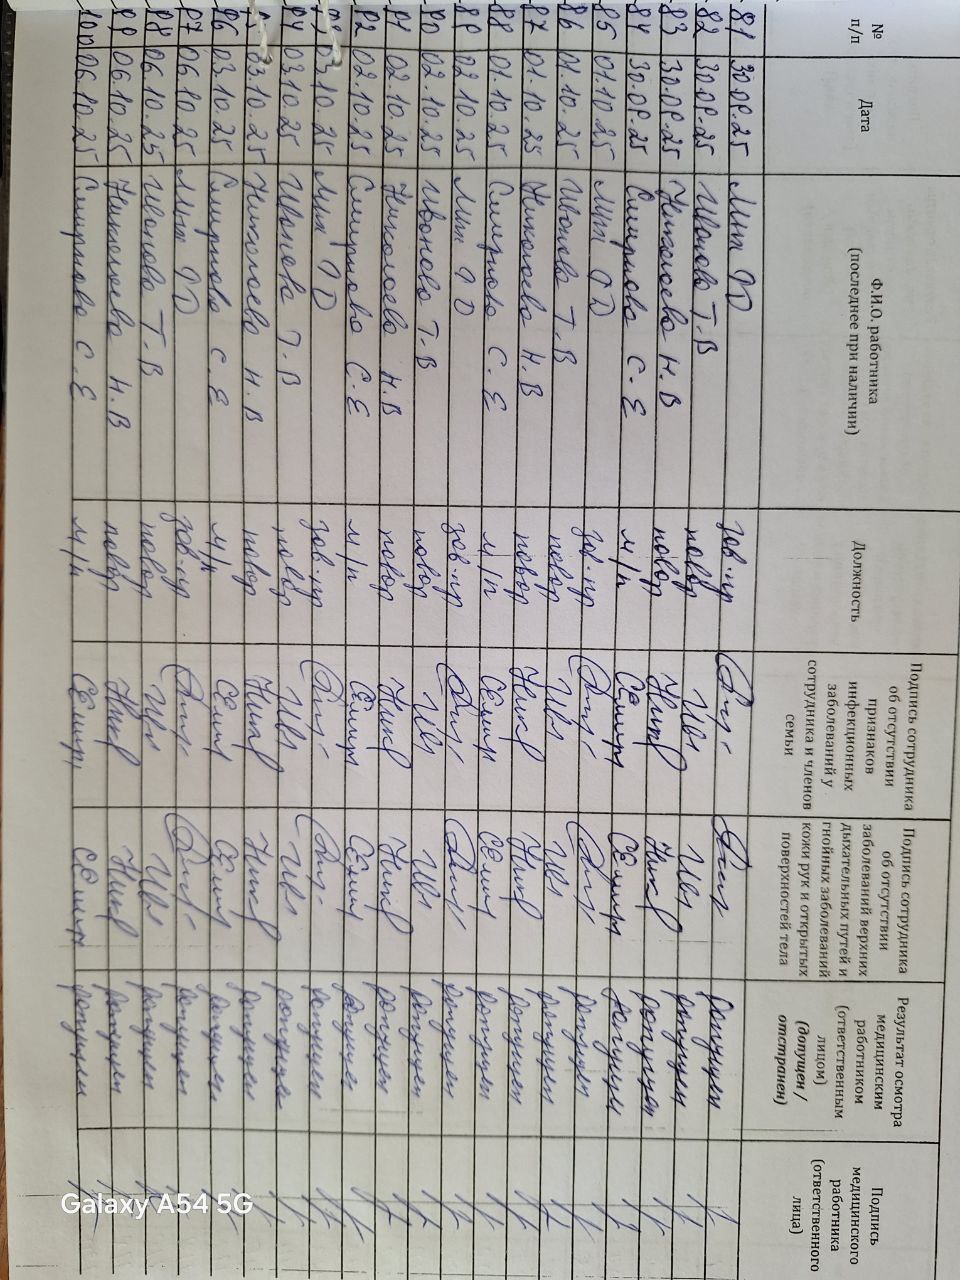 № п/п
Дата
Ф.И.О. работника (последнее при наличии)
Должность
Подпись сотрудника об отсутствии признаков инфекционных заболеваний у сотрудника и членов семьи
Подпись сотрудника об отсутствии заболеваний верхних дыхательных путей и гнойных заболеваний кожи рук и открытых поверхностей тела
Результат осмотра медицинским работником (ответственным лицом) (допущен / отстранен)
Подпись медицинского работника (ответственного лица)
81 30.09.25 зав.пр допущен
82 30.09.25 Иванова Т.В повар Ива Ива допущен
83 30.09.25 Николаева Н.В повар Ник Ник допущен
84 30.09.25 Смирнова С.Е м/п допущен
85 01.10.25 зав.пр допущен
86 01.10.25 Иванова Т.В повар Ива Ива допущен
87 01.10.25 Николаева Н.В повар Ник Ник допущен
88 01.10.25 Смирнова С.Е м/п допущен
89 02.10.25 зав.пр допущен
90 02.10.25 Иванова Т.В повар Ива Ива допущен
91 02.10.25 Николаева Н.В повар Ник Ник допущен
92 02.10.25 Смирнова С.Е м/п допущен
03.10.25 зав.пр допущен
94 03.10.25 Иванова Т.В повар Ива Ива допущен
03.10.25 Николаева Н.В повар Ник Ник допущен
96 03.10.25 Смирнова С.Е м/п допущен
97 06.10.25 зав.пр допущен
98 06.10.25 Иванова Т.В повар Ива Ива допущен
99 06.10.25 Николаева Н.В повар Ник Ник допущен
100 06.10.25 Смирнова С.Е м/п допущен
Galaxy A54 5G